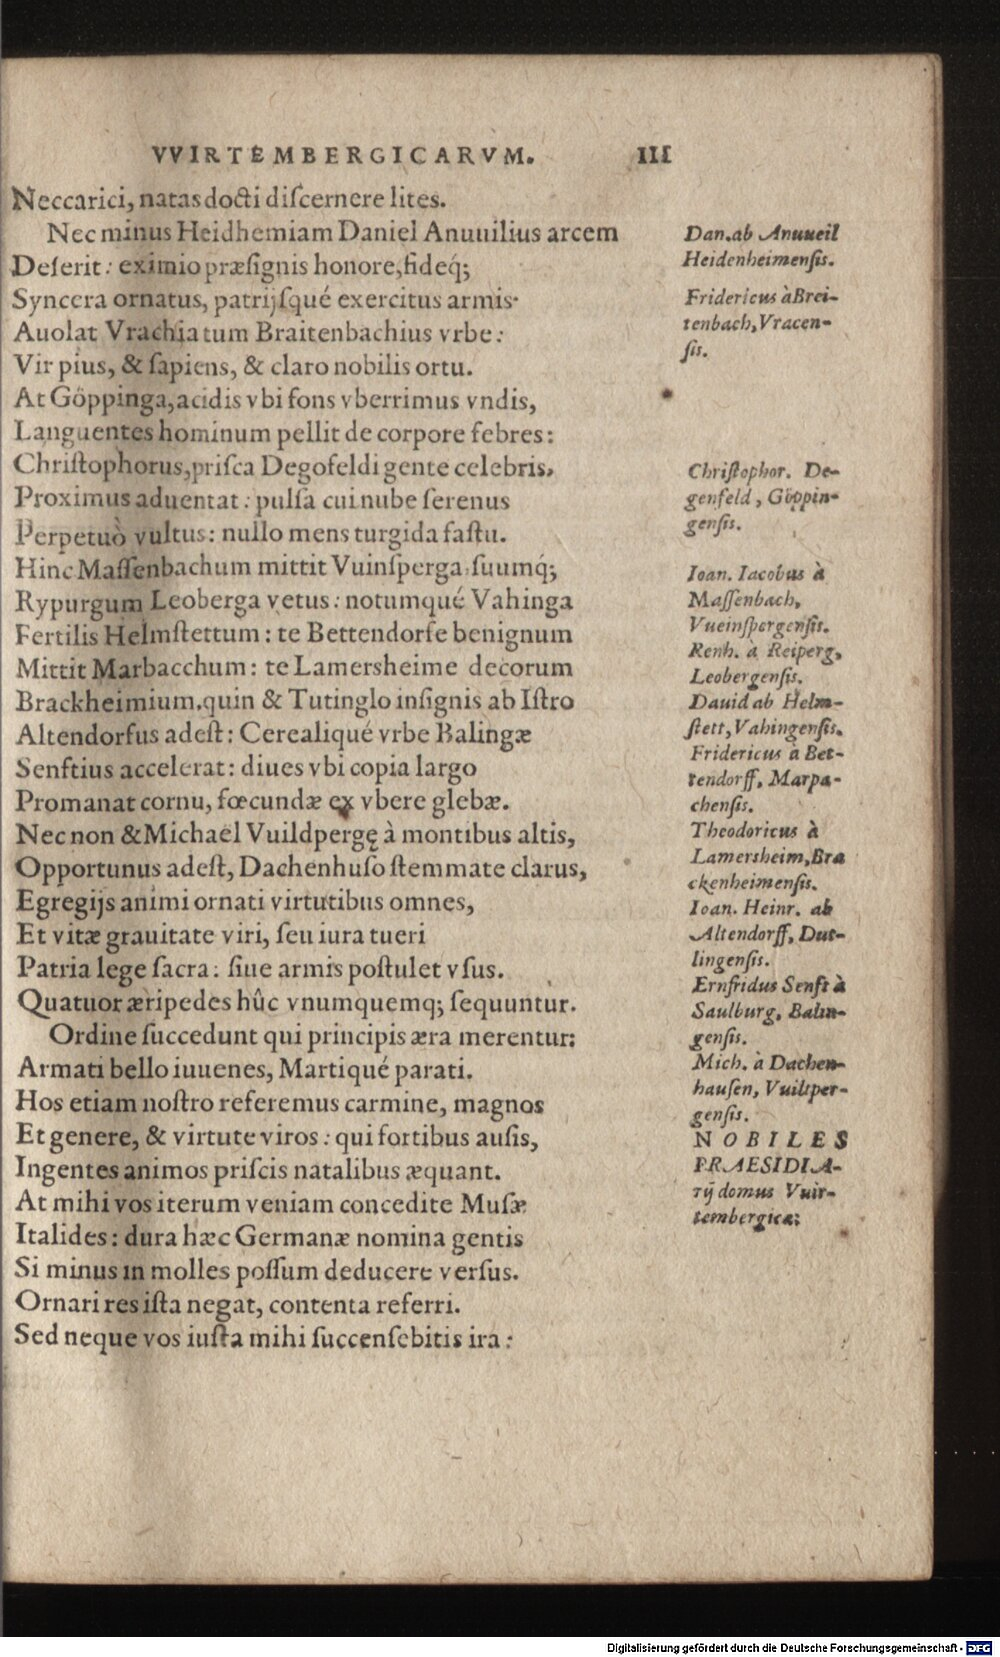 VVIRTEMBERGICARVM. III
Neccarici, natas docti diſcernere lites.
Nec minus Heidhemiam Daniel Anuuilius arcem
Deſerit: eximio præſignis honore, fideq́;
Syncera ornatus, patrijſqué exercitus armis.
Auolat Vrachia tum Braitenbachius vrbe:
Vir pius, & ſapiens, & claro nobilis ortu.
At Göppinga, acidis vbi fons vberrimus vndis,
Languentes hominum pellit de corpore febres:
Chriſtophorus, priſca Degofeldi gente celebris,
Proximus aduentat: pulſa cui nube ſerenus
Perpetuò vultus: nullo mens turgida faſtu.
Hinc Maſſenbachum mittit Vuinſperga, ſuumq́;
Rypurgum Leoberga vetus: notumqué Vahinga
Fertilis Helmſtettum: te Bettendorfe benignum
Mittit Marbacchum: te Lamersheime decorum
Brackheimium, quin & Tutinglo inſignis ab Iſtro
Altendorfus adeſt: Cerealiqué vrbe Balingæ
Senftius accelerat: diues vbi copia largo
Promanat cornu, fœcundæ ex vbere glebæ.
Nec non & Michaël Vuildpergę à montibus altis,
Opportunus adeſt, Dachenhuſo ſtemmate clarus,
Egregijs animi ornati virtutibus omnes,
Et vitæ grauitate viri, ſeu iura tueri
Patria lege ſacra: ſiue armis poſtulet vſus.
Quatuor æripedes hûc vnumquemq; ſequuntur.
Ordine ſuccedunt qui principis æra merentur:
Armati bello iuuenes, Martiqué parati.
Hos etiam noſtro referemus carmine, magnos
Et genere, & virtute viros: qui fortibus auſis,
Ingentes animos priſcis natalibus æquant.
At mihi vos iterum veniam concedite Muſæ
Italides: dura hæc Germanæ nomina gentis
Si minus in molles poſſum deducere verſus.
Ornari res iſta negat, contenta referri.
Sed neque vos iuſta mihi ſuccenſebitis ira:
Dan. ab Anuueil
Heidenheimenſis.
Fridericus à Brei-
tenbach, Vracen-
ſis.
Chriſtophor. De-
genfeld, Göppin-
genſis.
Ioan. Iacobus à
Maſſenbach,
Vueinſpergenſis.
Renh. à Reiperg,
Leobergenſis.
Dauid ab Helm-
ſtett, Vahingenſis.
Fridericus à Bet-
tendorff, Marpa-
chenſis.
Theodoricus à
Lamersheim, Bra
ckenheimenſis.
Ioan. Heinr. ab
Altendorff, Dut-
lingenſis.
Ernfridus Senft à
Saulburg, Balin-
genſis.
Mich. à Dachen-
hauſen, Vuiltper-
genſis.
NOBILES
PRAESIDIA-
rij domus Vuir-
tembergicæ;
Digitalisierung gefördert durch die Deutsche Forschungsgemeinschaft - DFG